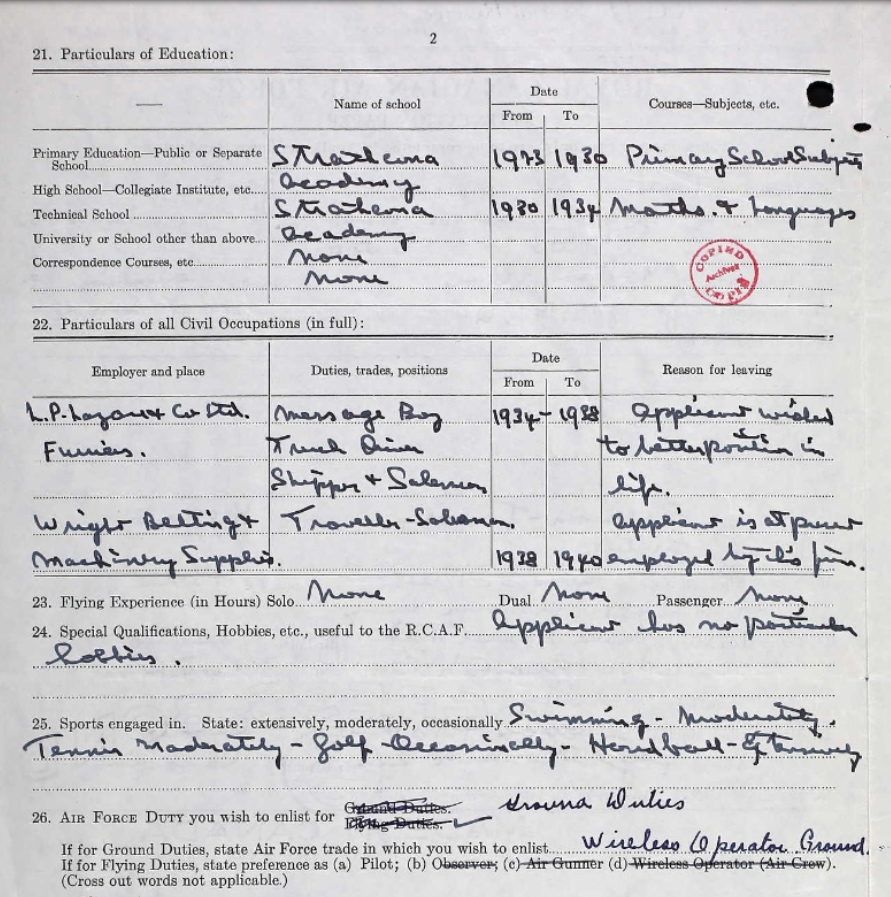 2
21. Particulars of Education:
Name of school
Date
From To
Courses—Subjects, etc.
Primary Education—Public or Separate
School Strathcona 1923 1930 Primary School Subjects
High School—Collegiate Institute, etc. Academy
Technical School Strathcona 1930 1934 Maths. & Languages
University or School other than above Academy
Correspondence Courses, etc. None
None
COPIED
Archives
COPIE
22. Particulars of all Civil Occupations (in full):
Employer and place
Duties, trades, positions
Date
From To
Reason for leaving
L.P. Lazare & Co Ltd. Message Boy 1934 - 1938 Applicant wished
Furriers. Truck Driver to better position in
Shipper & Salesman life.
Wright Belting & Traveller-Salesman. Applicant is at present
Machinery Supplies. 1938 1940 employed by this firm.
23. Flying Experience (in Hours) Solo None Dual None Passenger None
24. Special Qualifications, Hobbies, etc., useful to the R.C.A.F. Applicant has no particular
hobbies.
25. Sports engaged in. State: extensively, moderately, occasionally Swimming - Moderately.
Tennis Moderately - Golf - Occasionally - Handball - Extensively
26. AIR FORCE DUTY you wish to enlist for Ground Duties. Ground Duties
Flying Duties.
If for Ground Duties, state Air Force trade in which you wish to enlist Wireless Operator Ground.
If for Flying Duties, state preference as (a) Pilot; (b) Observer; (c) Air Gunner (d) Wireless Operator (Air Crew).
(Cross out words not applicable.)